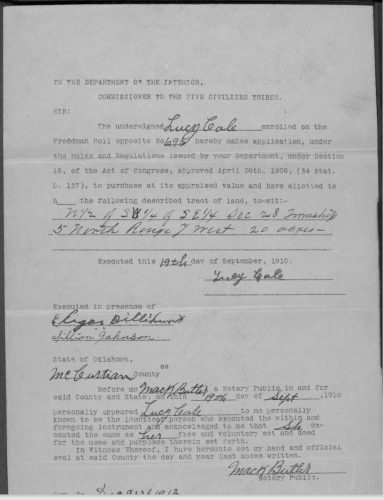 TO THE DEPARTMENT OF THE INTERIOR,
COMMISSIONER TO THE FIVE CIVILIZED TRIBES.
SIR:
The undersigned Lucy Cole enrolled on the
Freedman Roll opposite No 695 hereby makes application, under
the Rules and Regulations issued by your Department, under section
16, of the Act of Congress, approved April 26th, 1906, (34 Stat.
L. 137), to purchase at its appraised value and have allotted to
h the following described tract of land, to-wit:-
N/2 of S 1/4 of S E/4 Sec 28 Township
5 North Range 7 West 20 acres-
Executed this 19th day of September, 1910.
Lucy Cole
Executed in presence of
Dillihunt
Lillian Johnson
State of Oklahoma,
ss
McCurtian County
Before me Mack Butler a Notary Public, in and for
said County and State, on this 19th day of Sept, 1910
personally appeared Lucy Cole to me personally
known to be the identical person who executed the within and
foregoing instrument and acknowledged to me that She ex-
ecuted the same as her free and voluntary act and deed
for the uses and purposes therein set forth.
In Witness Thereof, I have hereunto set my hand and official
seal at said County the day and year last above written.
Mack Butler
Notary Public.
1912